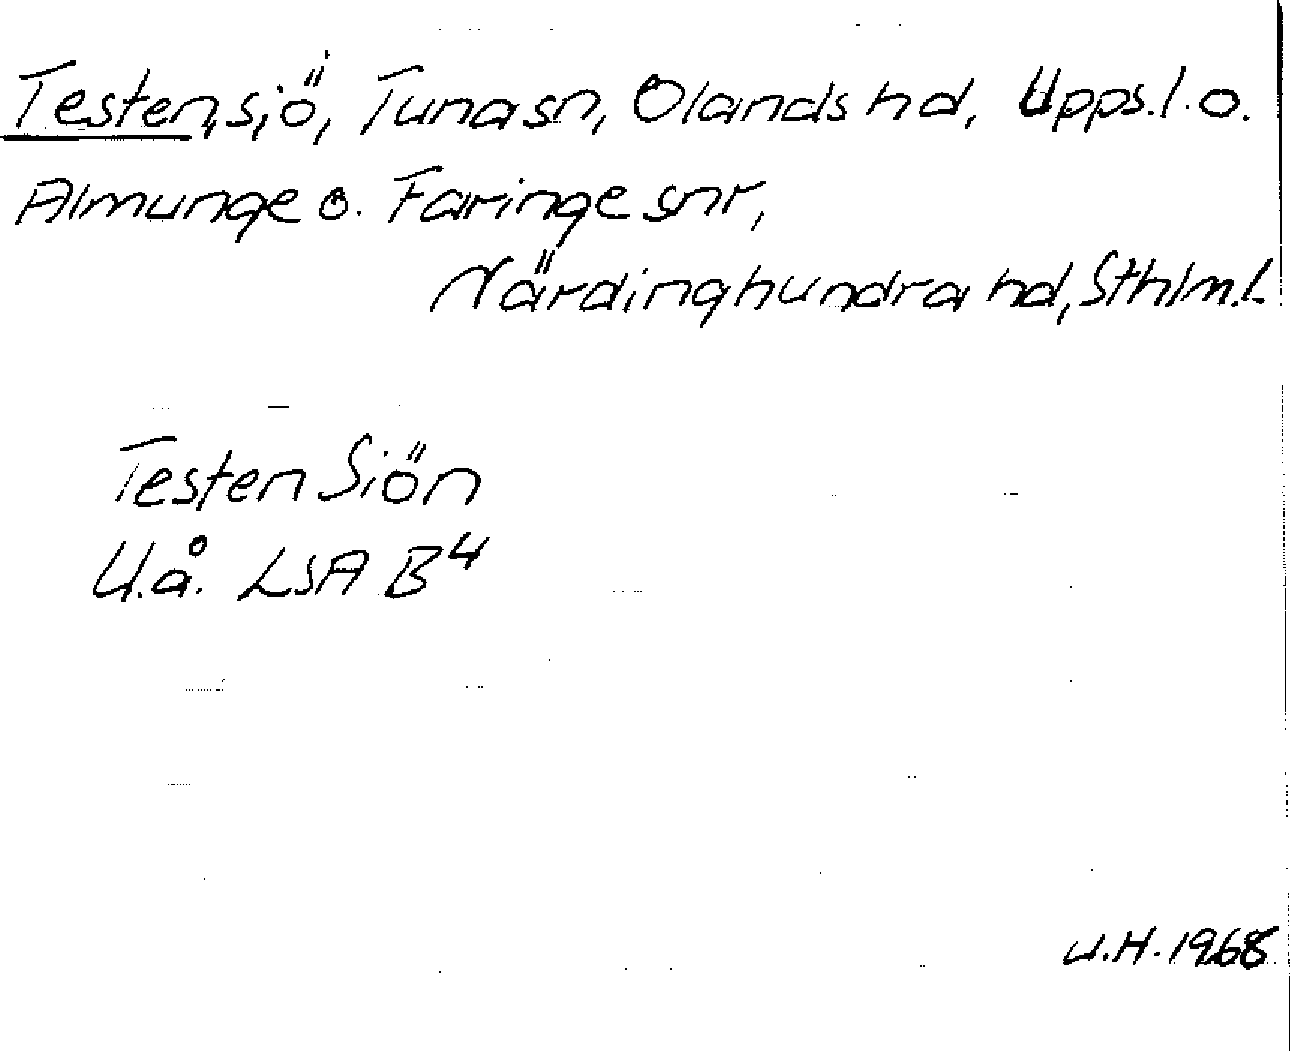 Testen, sjö, Tuna sn, Olands hd, Upps. l. o.
Almunge o. Faringe snr,
Närdinghundra hd, Sthlm. l.
Testen Siön
U.å. LSA B4
U.H. 1968